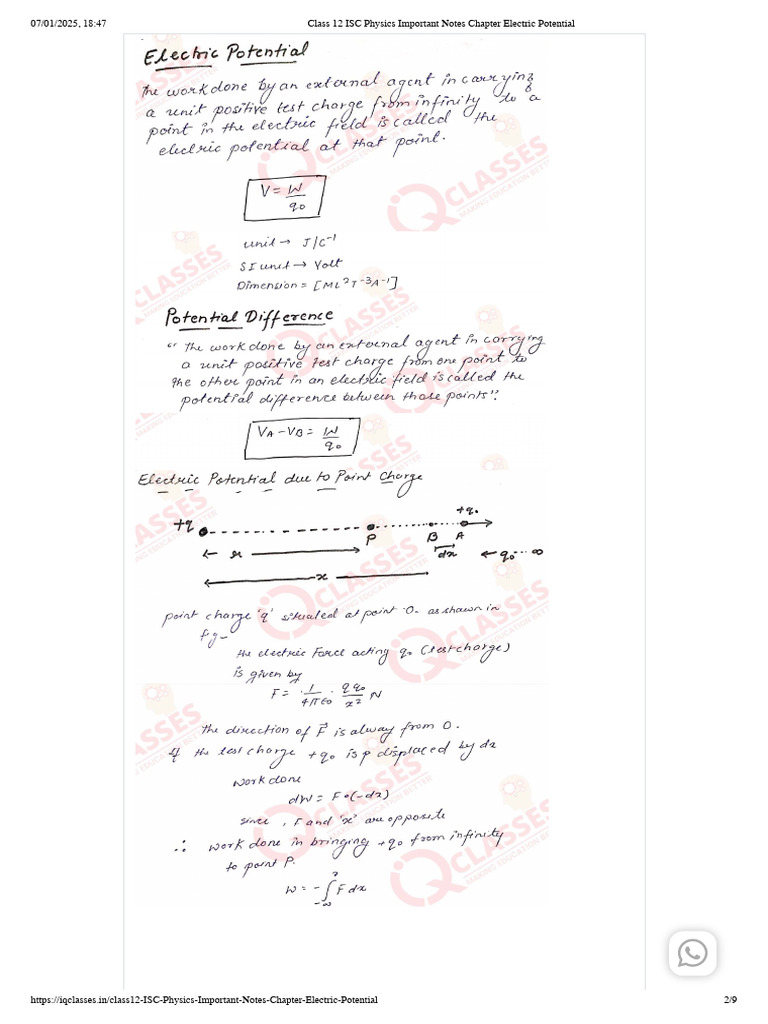 07/01/2025, 18:47 Class 12 ISC Physics Important Notes Chapter Electric Potential
Electric Potential
The work done by an external agent in carrying
a unit positive test charge from infinity to a
point in the electric field is called the
electric potential at that point.
V = W/q₀
unit → J/C⁻¹
SI unit → Volt
Dimension = [ML²T⁻³A⁻¹]
Potential Difference
"The work done by an external agent in carrying
a unit positive test charge from one point to
the other point in an electric field is called the
potential difference between those points".
V_A - V_B = W/q₀
Electric Potential due to Point Charge
+q P B A +q₀
r dx q₀ ∞
x
point charge 'q' situated at point 'O' as shown in
fig-
the electric Force acting q₀ (test charge)
is given by
F = 1/4πε₀ · qq₀/x² N
the direction of F⃗ is alway from O.
If the test charge +q₀ is p displaced by dx
work done
dW = F·(-dx)
since, F and 'x' are opposite
∴ work done in bringing +q₀ from infinity
to point P.
W = -∫ F dx
IQ CLASSES
MAKING EDUCATION BETTER
https://iqclasses.in/class12-ISC-Physics-Important-Notes-Chapter-Electric-Potential 2/9